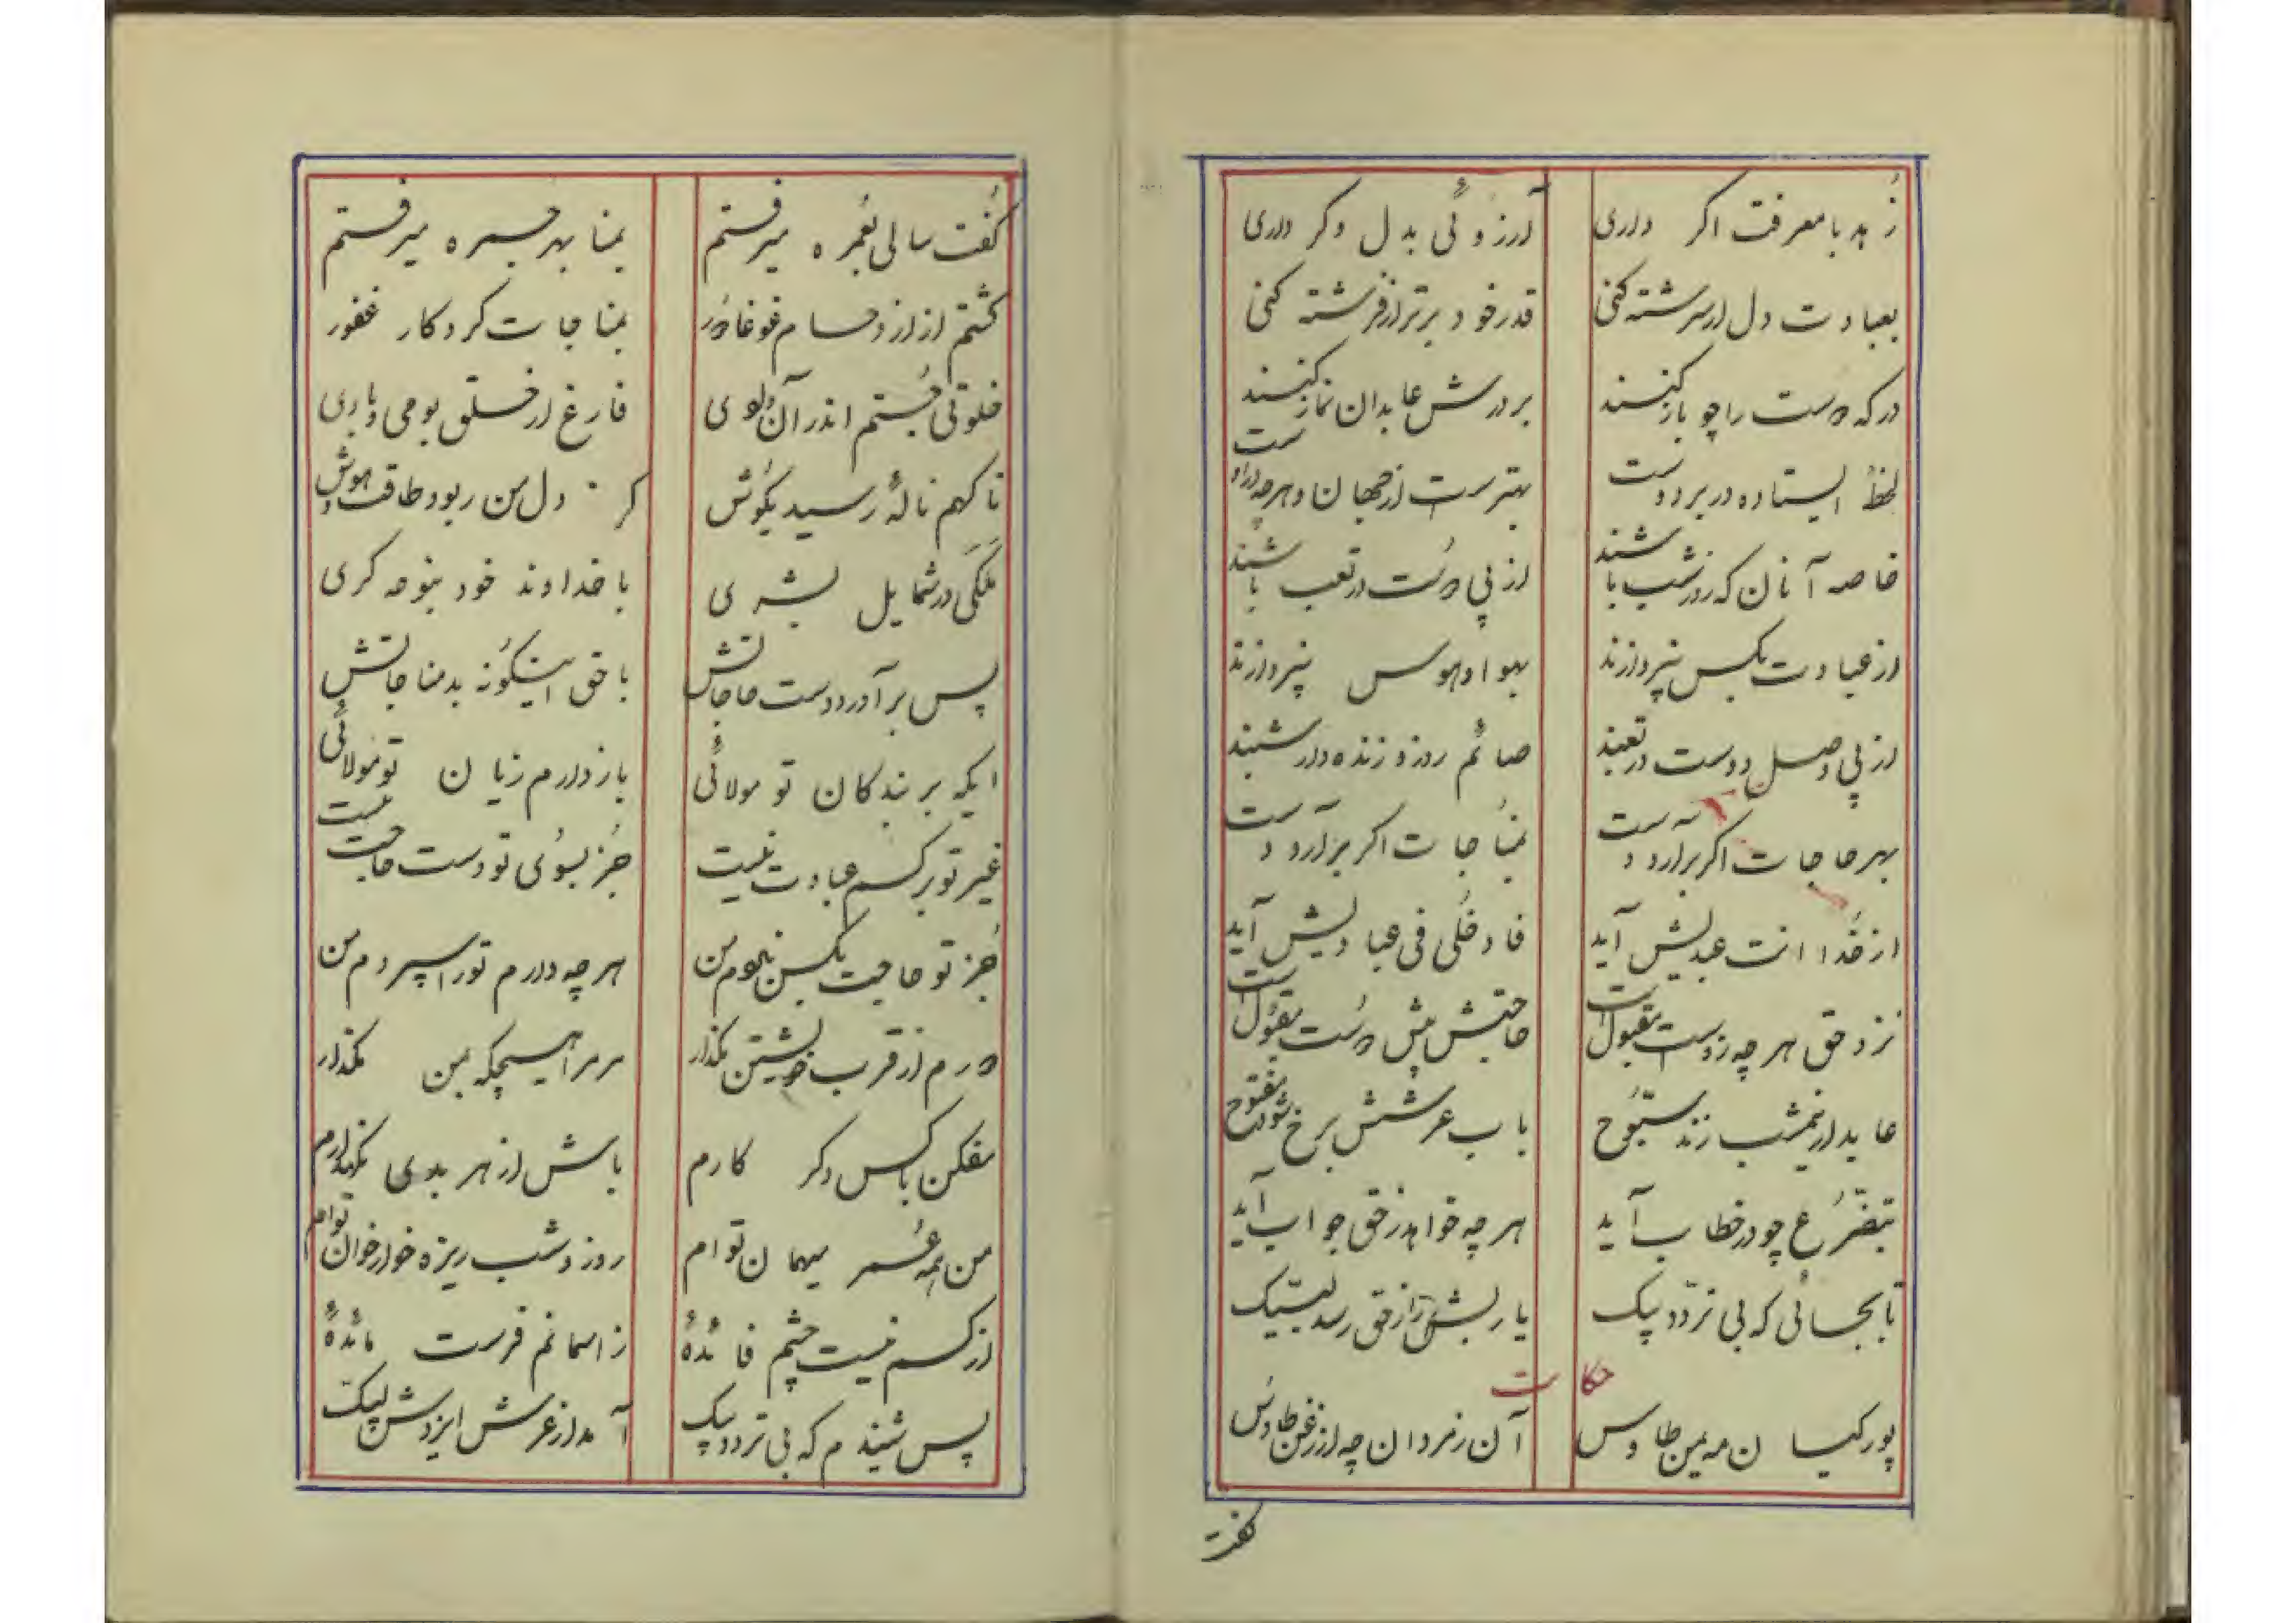 زهد با معرفت اگر داری آرزوئی بدل وگر داری
بعبادت دل ار سرشته کنی قدر خود برتر از فرشته کنی
درگه دوست را چو باز کنند بر درش عابدان نماز کنند
لحظهٔ ایستاده در بر دوست بهترست از جهان و هرچه دراوست
خاصه آنان که روز و شب باشند از پی دوست در تعب باشند
از عبادت بکس نپردازند بهوا و هوس نپردازند
از پی وصل دوست در تعبند صائم روز و زنده دار شبند
بهر حاجات اگر برآرد دست بمناجات اگر برآرد دست
از خدا انت عبدیش آید فادخلی فی عبادیش آید
نزد حق هر چه زوست مقبول است حاجتش پیش دوست مقبول است
عابد ار نیمشب زند سبّوح باب عرشش برخ شود مفتوح
بتضرّع چو در خطاب آید هر چه خواهد ز حق جواب آید
تا بجائی که بی تردّد پیک یا ربش را ز حق رسد لبّیک
حکایت
پور کیسان مهین طاوس آن ز مردان چه از زغن طاوس
گفت
گفت سالی بعمره میرفتم بمنا بهر جمره میرفتم
گشتم از ازدحام غوغا دور بمناجات کردگار غفور
خلوتی جستم اندر آن وادی فارغ از خلق بومی و بادی
ناگهم نالهٔ رسید بگوش کز دل من ربود طاقت و هوش
ملکی در شمایل بشری با خداوند خود بنوحه گری
پس برآورد دست حاجاتش با حق اینگونه بد مناجاتش
ایکه بر بندگان تو مولائی بازدارم زیان تو مولائی
غیر تو بر کسم عبادت نیست جز بسوی تو دست حاجت نیست
جز تو حاجت بکس نبردم من هر چه دارم تو را سپردم من
دورم از قرب خویشتن مگذار مر مرا هیچگه بمن مگذار
مفکن با کس دگر کارم باش از هر بدی نگهدارم
من همه عمر میهمان توام روز و شب ریزه خوار خوان توام
از کسم نیست چشم فائدهٔ ز اسمانم فرست مائدهٔ
پس شنیدم که بی تردد پیک آمد از عرش ایزدش لبیک